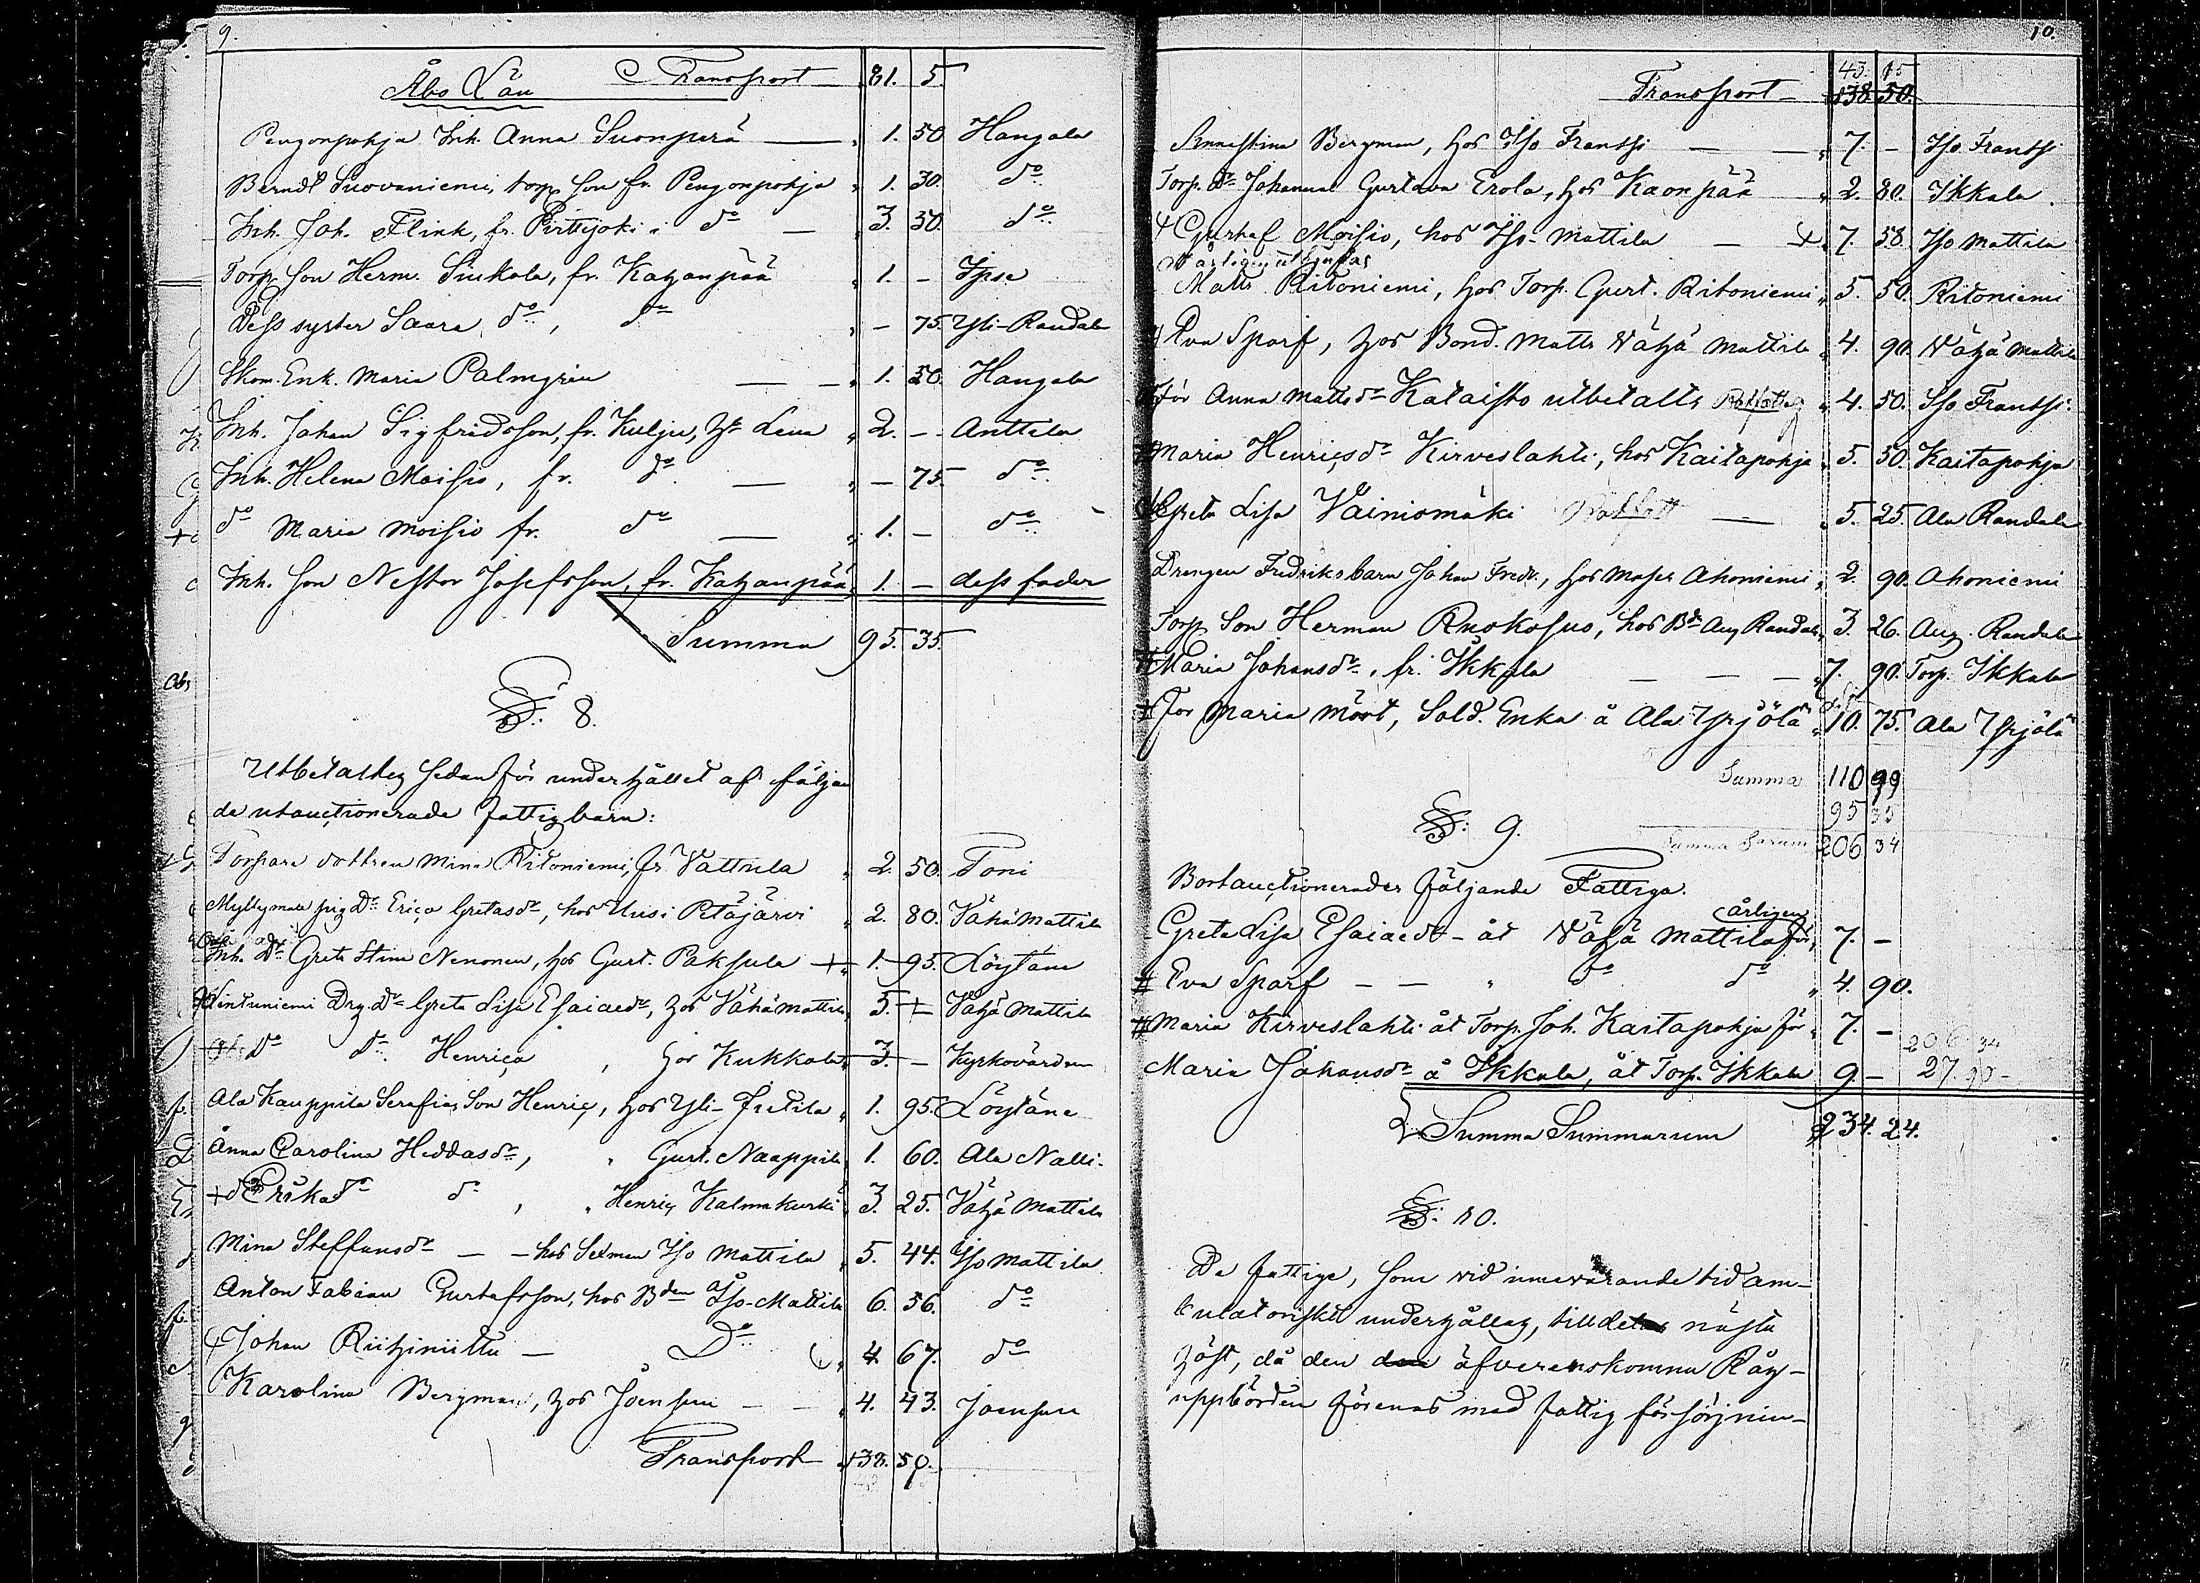 9.
Åbo Län Transport 81. 5.
Pengonpohja Inh. Anna Suonperä — 1. 50 Hangala
Berndt Suovaniemi, torp. son fr. Pengonpohja 1. 30. do
Inh. Joh. Flink, fr. Pirttijoki i do — 3. 30. do
Torp. son Herm. Siukola, fr. Katzanpää 1. – Ipse
Dess syster Saara, do, do – 75. Yli-Randala
Skom. Enk. Maria Palmgrén — 1. 50. Hangala
Inh. Johan Sigfridsson, fr. Kulju, Lena 2. – Anttila
Inh. Helena Moisio, fr. do — – 75. do
do Maria Moisio fr. do — 1. – do
Inh. son Nestor Josefsson, fr. Katzanpää 1. – dess fader
Summa 95. 35.
§: 8.
Utbetaltes sedan för underhållet af följan
de utauctionerade fattigbarn:
Torpare dottren Mina Ritoniemi, fr. Vattula 2. 50. Toni
Myllymaa pig Dr. Eriça Gretasdr, hos Uusi Pitäjärvi 2. 80. Vähä Mattila
Inh. Dr. Greta Stina Nenonen, hos Gust. Paksula + 1. 95. Löytäne
Lintuniemi Drg. Dr. Greta Lisa Esaiaedr, hos Vähä Mattila 5. – Vähä Mattila
Do Do Henriça, hos Kukkola 3. – Kyrkovärden
Ala Kauppila Serafias Son Henriç, hos Yli- 1. 95. Löytäne
Anna Carolina Heddasdr, " Gust. Naappila 1. 60. Ala Nalli.
+ Erika do do, " Henriç Kalmakurki 3. 25. Vähä Mattila
Mina Steffansdr — — hos Sexman Iso Mattila 5. 44. Iso Mattila
Anton Fabian Gustafsson, hos Bden Iso-Mattila 6. 56. do
Johan Riihiniittu — Do 4. 67. do
Karolina Bergman, hos Joensuu — — 4. 43. Joensuu
Transport 138. 50.
10.
43. 15
Transport — 138 50.
Annastina Bergman, hos Iso Franssi — — 7. – Iso Franssi
Torp. dr Johanna Gustava Erola, hos Kaonpää 2. 80. Ikkala.
+ Gustaf Moisio, hos Iso-Mattila — + 7. 58. Iso Mattila
Matts Ritoniemi, hos Torp. Gust. Ritoniemi 5. 50. Ritoniemi
Eva Sparf, hos Bond. Matts Vähä Mattila 4. 90. Vähä Mattila
För Anna Mattsdr Kataisto utbetalts 4. 50. Iso Franssi.
Maria Henriçsdr Kirveslahti, hos Kaitapohja 5. 50. Kaitapohja
Greta Lisa Vainiomäki — 5. 25. Ala Randala
Drengen Fredriks barn Johan Fredr., hos Moses Ahoniemi 2. 90. Ahoniemi
Torp. Son Herman Ruokosuo, hos Bdn Aug Randala 3. 26. Aug. Randala
Maria Johansdr, fr. Ikkala — — — 7. 90. Torp. Ikkala
För Maria Mört, Sold. Enka å Ala Yrjölä 10. 75. Ala Yrjölä
Summa 110 99
95 35
Summa Sarum 206 34
§: 9.
Bortauçtionerades följande Fattiga.
årligen
Greta Lisa Esaiaedr – åt Vähä Mattila för 7. –
Eva Sparf — — " do do 4. 90.
Maria Kirveslahti åt Torp. Joh. Kaitapohja för 7. – 206. 34
Maria Johansdr å Ikkala, åt Torp. Ikkala 9 – 27. 90 –
Summa Summarum 234. 24.
§: 10.
De fattige, som vid innevarande tid am-
bulatoriskt underhålles, till det nästa
höst, då den den öfverenskomna Råg-
uppbörden förenas med fattig försörjnin-